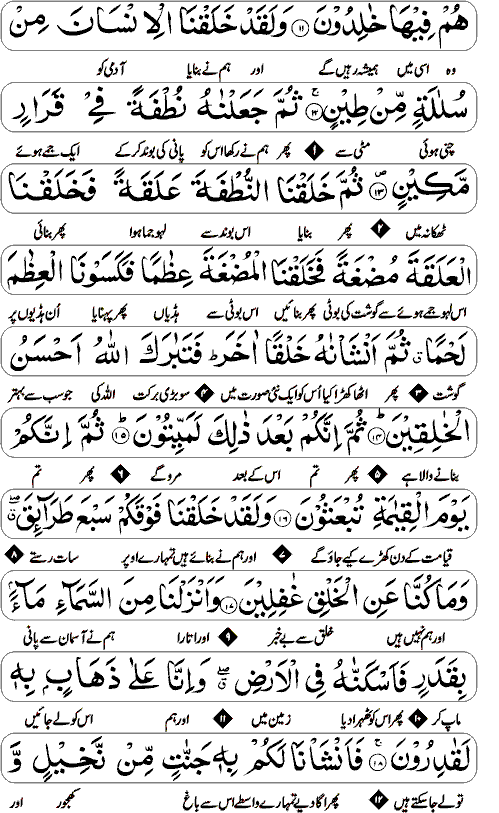 هُمْ فِيْهَا خٰلِدُوْنَ ﴿۱۱﴾ وَلَقَدْ خَلَقْنَا الْاِنْسَانَ مِنْ
وہ اسی میں ہمیشہ رہیں گے اور ہم نے بنایا آدمی کو
سُلٰلَةٍ مِّنْ طِيْنٍ ﴿۱۲﴾ ثُمَّ جَعَلْنٰهُ نُطْفَةً فِيْ قَرَارٍ
چنی ہوئی مٹی سے ۱ پھر ہم نے رکھا اس کو پانی کی بوند کر کے ایک جمے ہوئے
مَّكِيْنٍ ﴿۱۳﴾ ثُمَّ خَلَقْنَا النُّطْفَةَ عَلَقَةً فَخَلَقْنَا
ٹھکانہ میں ۲ پھر بنایا اس بوند سے لہو جما ہوا پھر بنائی
الْعَلَقَةَ مُضْغَةً فَخَلَقْنَا الْمُضْغَةَ عِظٰمًا فَكَسَوْنَا الْعِظٰمَ
اس لہو جمے ہوئے سے گوشت کی بوٹی پھر بنائیں اس بوٹی سے ہڈیاں پھر پہنایا اُن ہڈیوں پر
لَحْمًا ثُمَّ اَنْشَاْنٰهُ خَلْقًا اٰخَرَ ؕ فَتَبٰرَكَ اللّٰهُ اَحْسَنُ
گوشت ۳ پھر اٹھا کھڑا کیا اُس کو ایک نئی صورت میں ۴ سو بڑی برکت اللہ کی جو سب سے بہتر
الْخٰلِقِيْنَ ﴿۱۴﴾ ثُمَّ اِنَّكُمْ بَعْدَ ذٰلِكَ لَمَيِّتُوْنَ ﴿۱۵﴾ ثُمَّ اِنَّكُمْ
بنانے والا ہے ۵ پھر تم اس کے بعد مرو گے ۶ پھر تم
يَوْمَ الْقِيٰمَةِ تُبْعَثُوْنَ ﴿۱۶﴾ وَلَقَدْ خَلَقْنَا فَوْقَكُمْ سَبْعَ طَرَآئِقَ
قیامت کے دن کھڑے کیے جاؤ گے ۷ اور ہم نے بنائے ہیں تمہارے اوپر سات رستے ۸
وَمَا كُنَّا عَنِ الْخَلْقِ غٰفِلِيْنَ ﴿۱۷﴾ وَاَنْزَلْنَا مِنَ السَّمَآءِ مَآءًۢ
اور ہم نہیں ہیں خلق سے بے خبر ۹ اور اتارا ہم نے آسمان سے پانی
بِقَدَرٍ فَاَسْكَنّٰهُ فِي الْاَرْضِ وَاِنَّا عَلٰى ذَهَابٍۭ بِهٖ
ماپ کر ۱۰ پھر اس کو ٹھہرا دیا زمین میں ۱۱ اور ہم اس کو لے جائیں
لَقٰدِرُوْنَ ﴿۱۸﴾ فَاَنْشَاْنَا لَكُمْ بِهٖ جَنّٰتٍ مِّنْ نَّخِيْلٍ وَّ
تو لے جا سکتے ہیں ۱۲ پھر اگا دیے تمہارے واسطے اس سے باغ کھجور اور